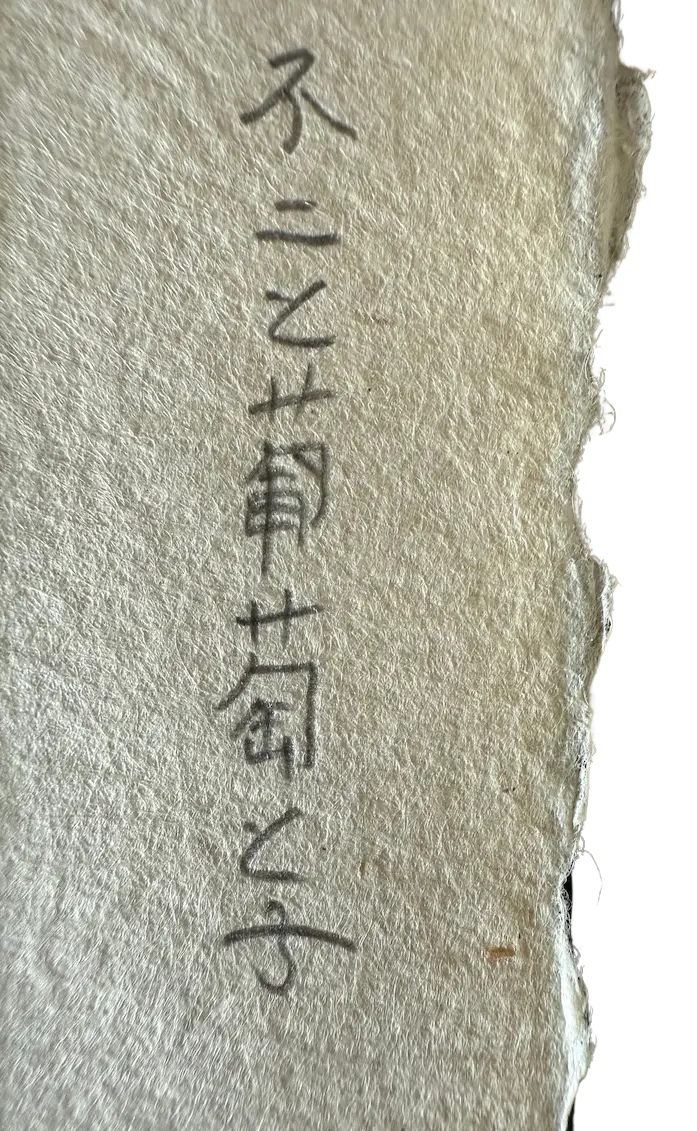 不二と葡萄と子